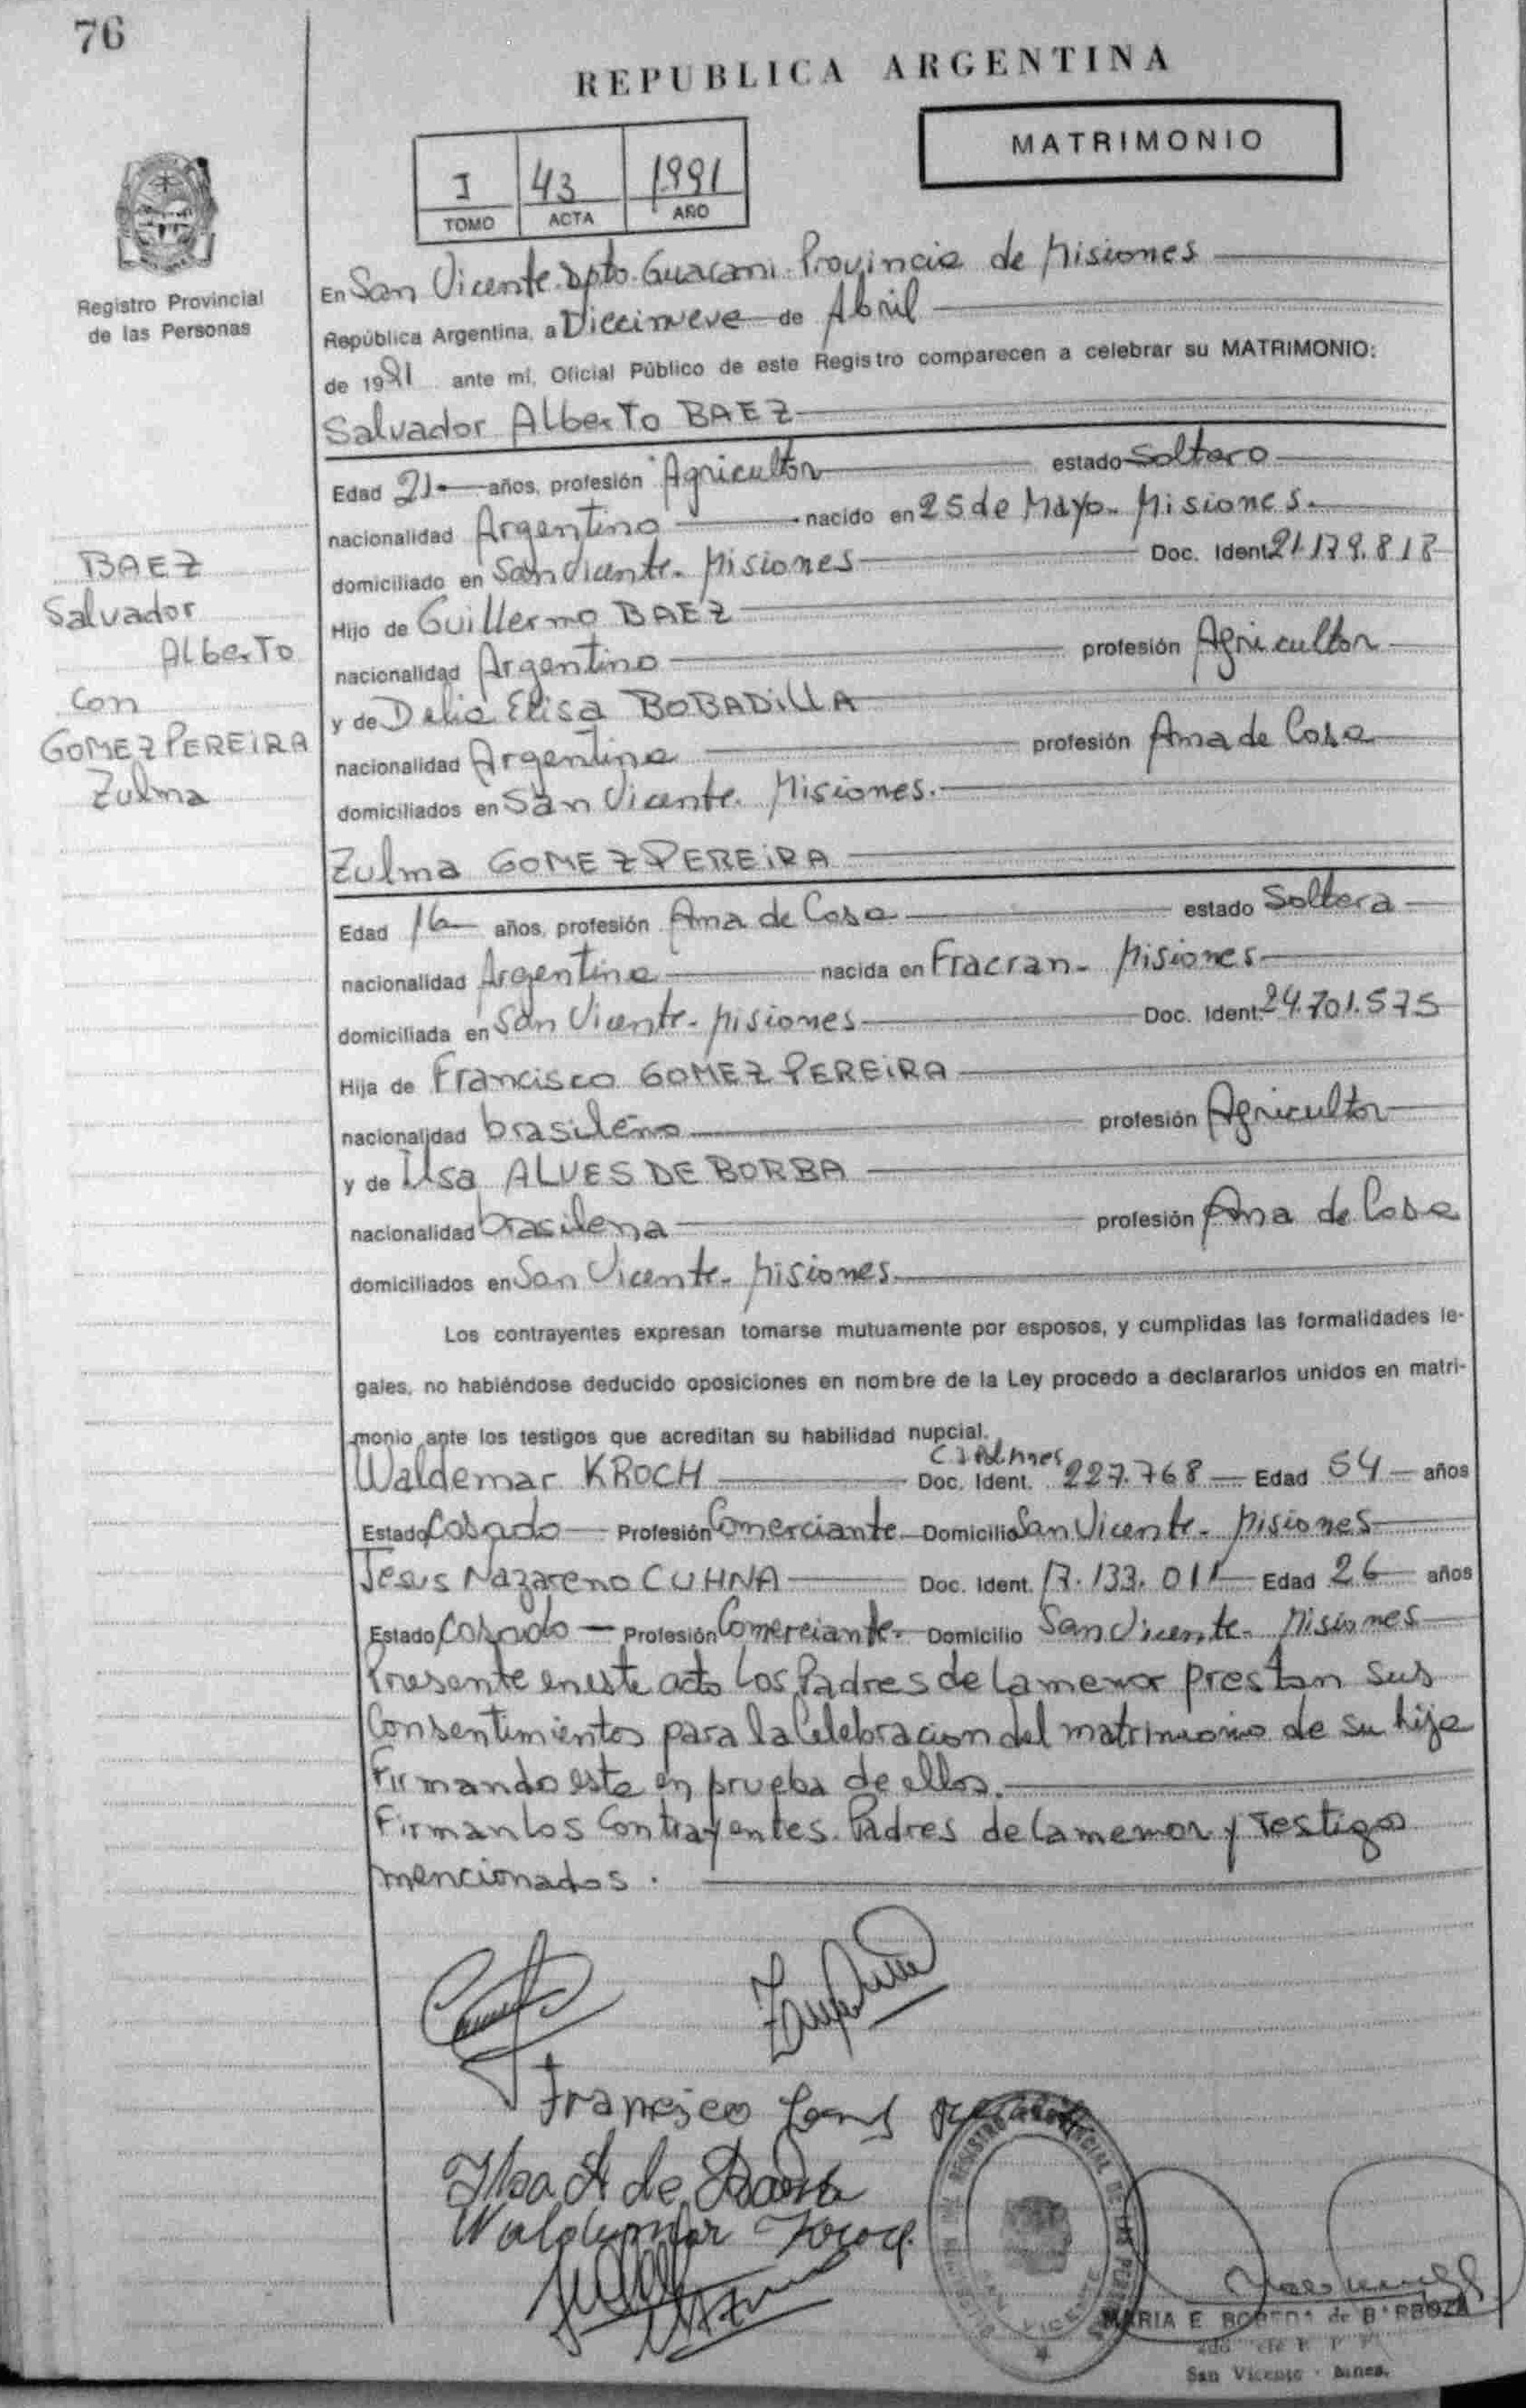 76
REPUBLICA ARGENTINA
MATRIMONIO
I 43 1991
TOMO ACTA AÑO
Registro Provincial
de las Personas
En San Vicente Dpto. Guarani. Provincia de Misiones
República Argentina, a Diecinueve de Abril
de 1991 ante mí, Oficial Público de este Registro comparecen a celebrar su MATRIMONIO:
Salvador Alberto BAEZ
Edad 21 años, profesión Agricultor estado Soltero
nacionalidad Argentino nacido en 25 de Mayo. Misiones.
domiciliado en San Vicente. Misiones Doc. Ident. 21.179.818
Hijo de Guillermo BAEZ
nacionalidad Argentino profesión Agricultor
y de Delia Elisa BOBADILLA
nacionalidad Argentina profesión Ama de Casa
domiciliados en San Vicente. Misiones.
BAEZ
Salvador
Alberto
Con
GOMEZ PEREIRA
Zulma
Zulma GOMEZ PEREIRA
Edad 16 años, profesión Ama de Casa estado Soltera
nacionalidad Argentina nacida en Fracran - Misiones
domiciliada en San Vicente - Misiones Doc. Ident. 24.701.575
Hija de Francisco GOMEZ PEREIRA
nacionalidad brasileño profesión Agricultor
y de Ilsa ALVES DE BORBA
nacionalidad brasilena profesión Ama de Casa
domiciliados en San Vicente - Misiones
Los contrayentes expresan tomarse mutuamente por esposos, y cumplidas las formalidades le-
gales, no habiéndose deducido oposiciones en nombre de la Ley procedo a declararlos unidos en matri-
monio ante los testigos que acreditan su habilidad nupcial.
Waldemar KROCH Doc. Ident. 227.768 Edad 54 años
Estado Casado Profesión Comerciante Domicilio San Vicente - Misiones
Jesus Nazareno CUHNA Doc. Ident. 17.133.011 Edad 26 años
Estado Casado Profesión Comerciante. Domicilio San Vicente - Misiones
Presente en este acto Los Padres de la menor prestan sus
Consentimientos para la Celebracion del matrimonio de su hija
Firmando este en prueba de ellos.
Firman los Contrayentes. Padres de la menor y Testigos
mencionados.
Francisco
Ilsa A de Borba
Waldemar Kroch
REGISTRO PROVINCIAL DE LAS PERSONAS
SAN VICENTE
MARIA E. de BARBOZA
San Vicente - Mnes.